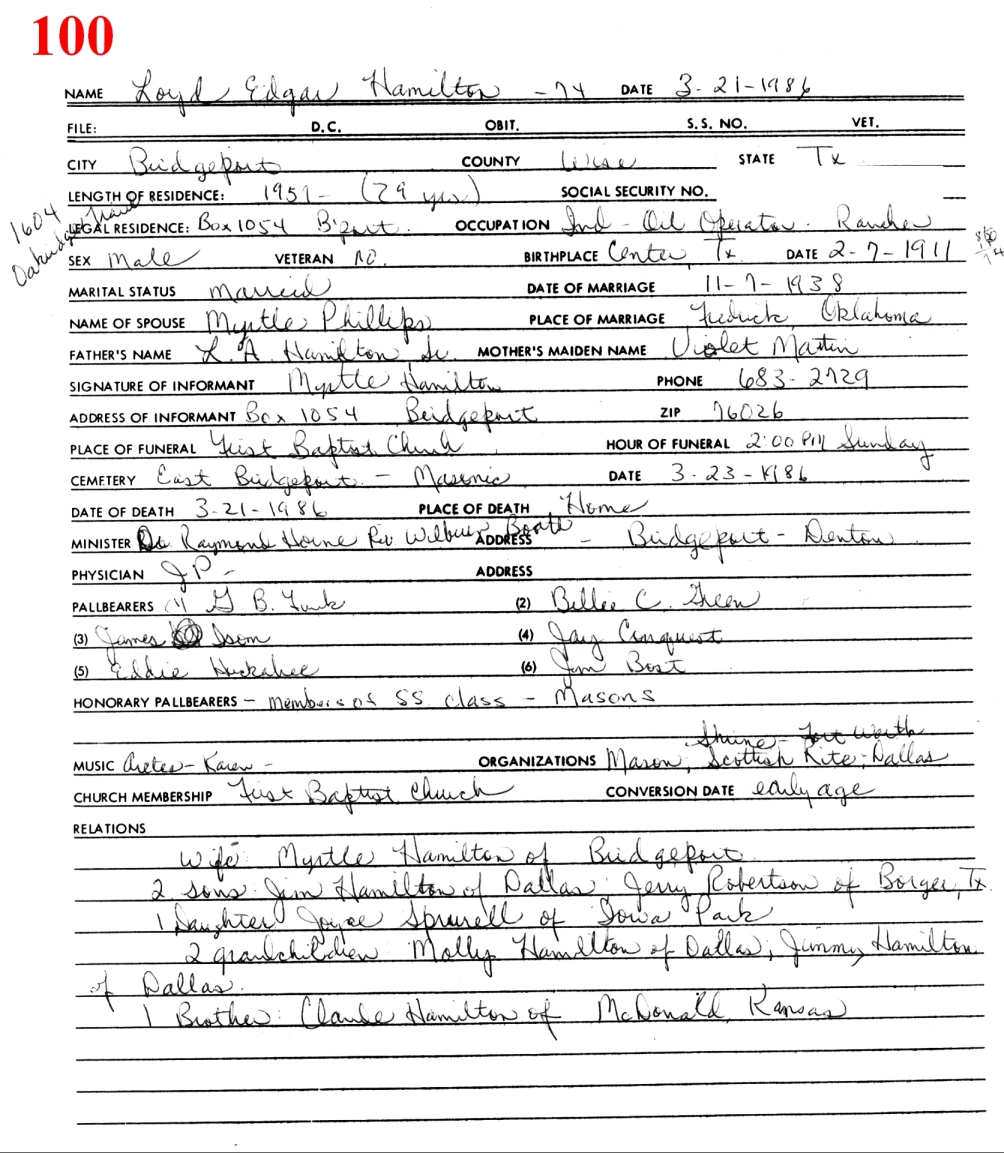 100
NAME Loyd Edgar Hamilton - 74 DATE 3-21-1986
FILE: D.C. OBIT. S.S. NO. VET.
CITY Bridgeport COUNTY Wise STATE Tx
LENGTH OF RESIDENCE: 1957- (29 yrs) SOCIAL SECURITY NO.
1604 Oakridge Trail
LEGAL RESIDENCE: Box 1054 B'port. OCCUPATION Ind - Oil Operator - Rancher
SEX Male VETERAN no. BIRTHPLACE Center, Tx DATE 2-7-1911
MARITAL STATUS Married DATE OF MARRIAGE 11-7-1938
NAME OF SPOUSE Myrtle Phillips PLACE OF MARRIAGE Fredrick, Oklahoma
FATHER'S NAME L. A. Hamilton, Sr. MOTHER'S MAIDEN NAME Violet Martin
SIGNATURE OF INFORMANT Myrtle Hamilton PHONE 683-2729
ADDRESS OF INFORMANT Box 1054 Bridgeport ZIP 76026
PLACE OF FUNERAL First Baptist Church HOUR OF FUNERAL 2:00 PM Sunday
CEMETERY East Bridgeport - Masonic DATE 3-23-1986
DATE OF DEATH 3-21-1986 PLACE OF DEATH Home
MINISTER Dr. Raymond Horne Rev Wilbur Booth ADDRESS - Bridgeport - Denton
PHYSICIAN JP - ADDRESS
PALLBEARERS (1) G B. Funk (2) Billie C. Green
(3) James Isom (4) Jay
(5) Eddie Huckabee (6) Jim Bost
HONORARY PALLBEARERS - Members of SS class - Masons
Shrine - Fort Worth
MUSIC Aretes - Karen - ORGANIZATIONS Mason; Scottish Rite - Dallas
CHURCH MEMBERSHIP First Baptist Church CONVERSION DATE early age
RELATIONS
Wife: Myrtle Hamilton of Bridgeport
2 sons: Jim Hamilton of Dallas; Jerry Robertson of Borger, Tx
1 Daughter Joyce Spruell of Iowa Park
2 grandchildren Molly Hamilton of Dallas; Jimmy Hamilton
of Dallas.
1 Brother: Claude Hamilton of McDonald, Kansas